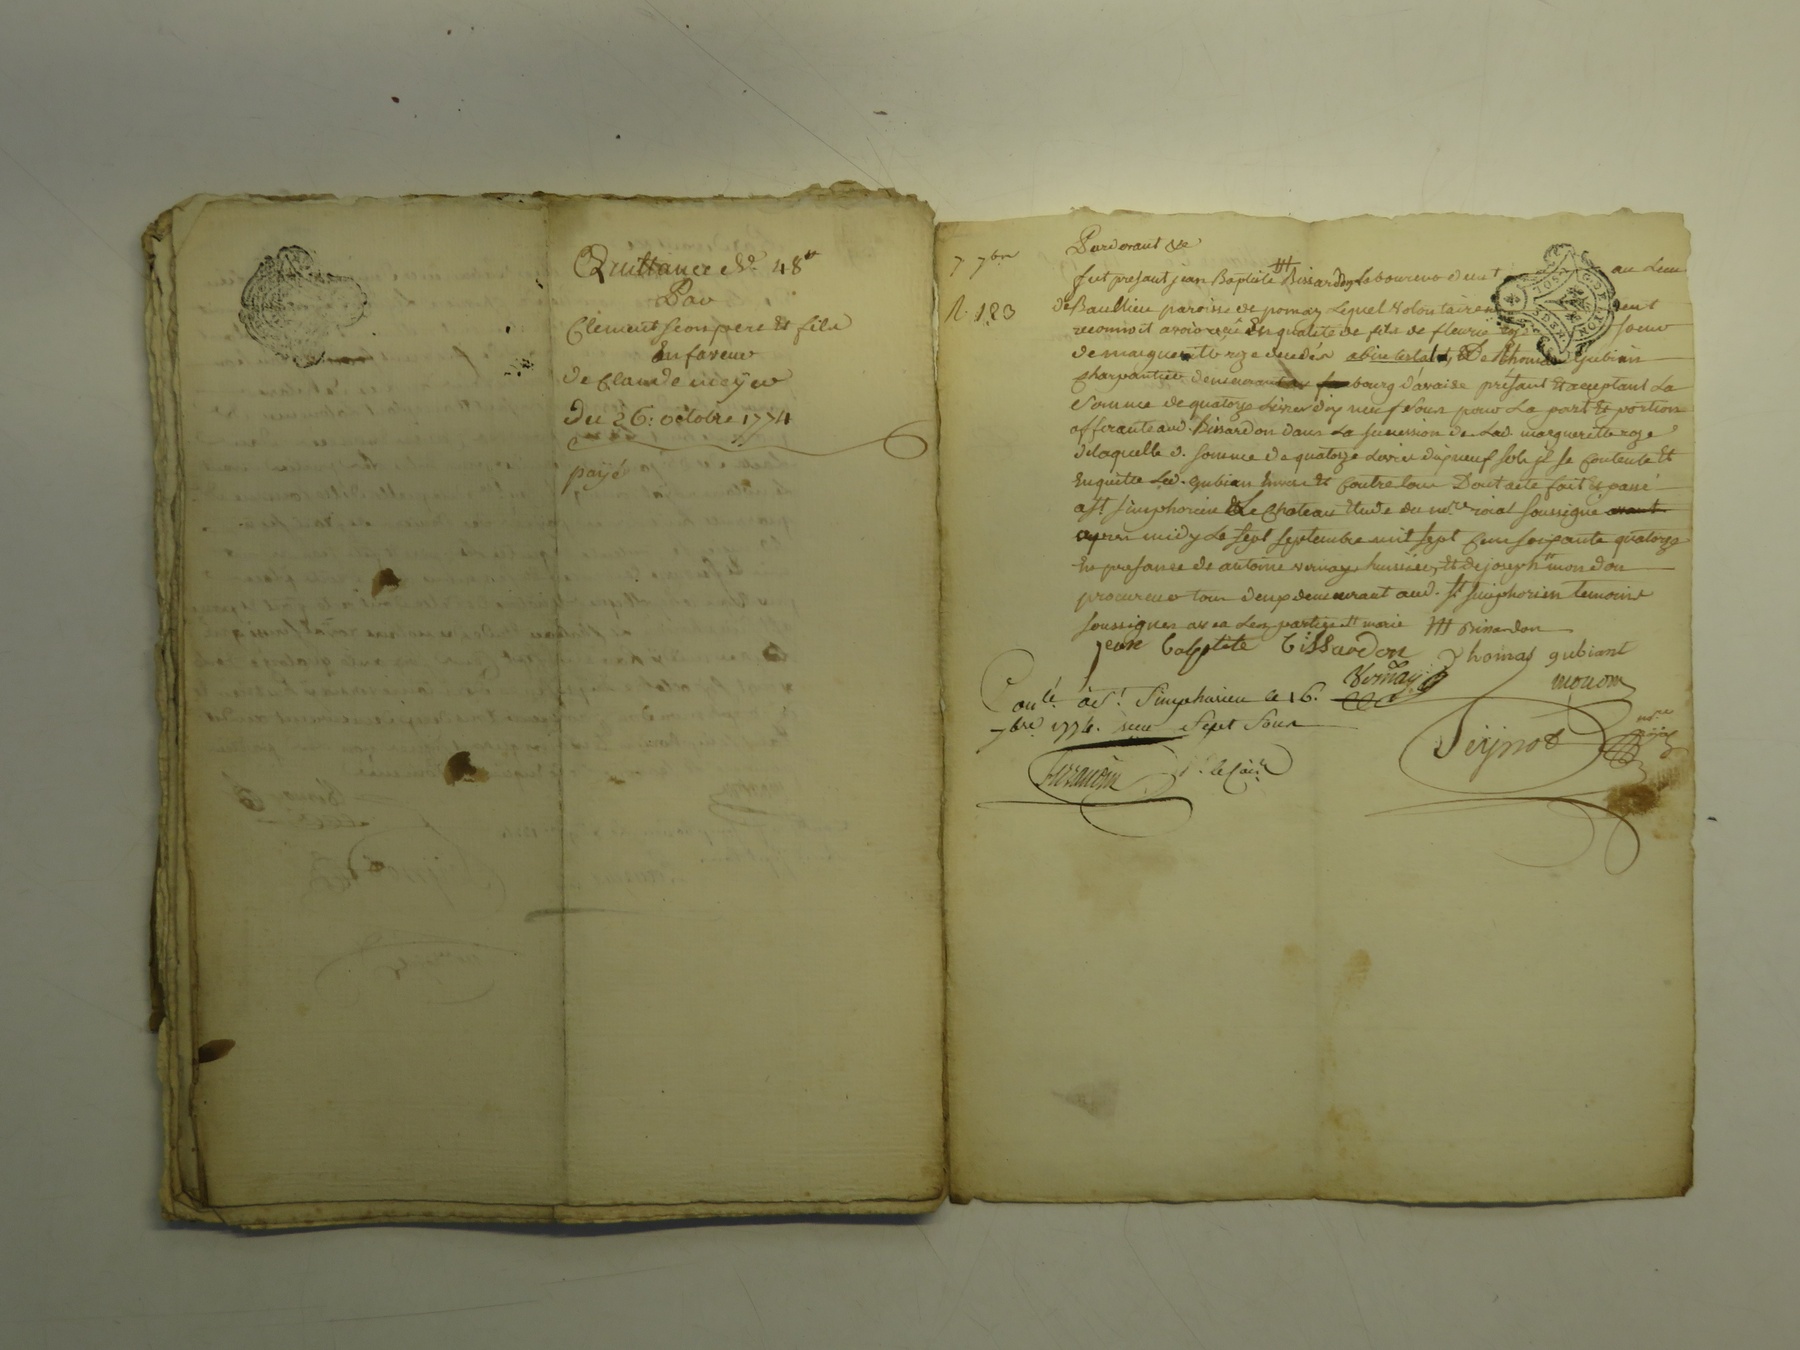 Quittance de 48#
Par
Clement Seon pere & fils
En faveur
de Claude
du 26: octobre 1774
payé
7 7bre
N. 123
Pardevant &c
fut présant jean Baptiste Bissardon Laboureur demt au Lieu
de Baullieu paroisse de pomay Lequel volontairement
reconnoit avoir reçu En qualité de fils de fleurie roze soeur
de margueritte roze decedés abintestat, De Sr thomas Gubian
Charpantier demeurant au bourg d'avaise présant Et acceptant La
Somme de quatorze Livres dix neuf Sous pour La part Et portion
afferante aud. Bissardon dans La sucession de Lad margueritte roze
delaquelle d. somme de quatorze Livres dix neuf sols jl se contente Et
En quitte Led. gubian Envers Et Contre tous Dont acte fait Et passé
a St simphorien Le Chateau Etude du nore roial soussigné avant
apres midy Le sept septembre mil sept Cens soixante quatorze
En presance de antoine vernay huissier, Et de joseph mondon
procureur tous deux demeurant aud. St simphorien temoins
soussignes avec Les parties Et marie ## Bissardon
jean baptiste bissardon Thomas gubiant
Vernay
Conlé à St. Simphorien le 16.
7bre 1774. reçu Sept Sous
Peijnot nore